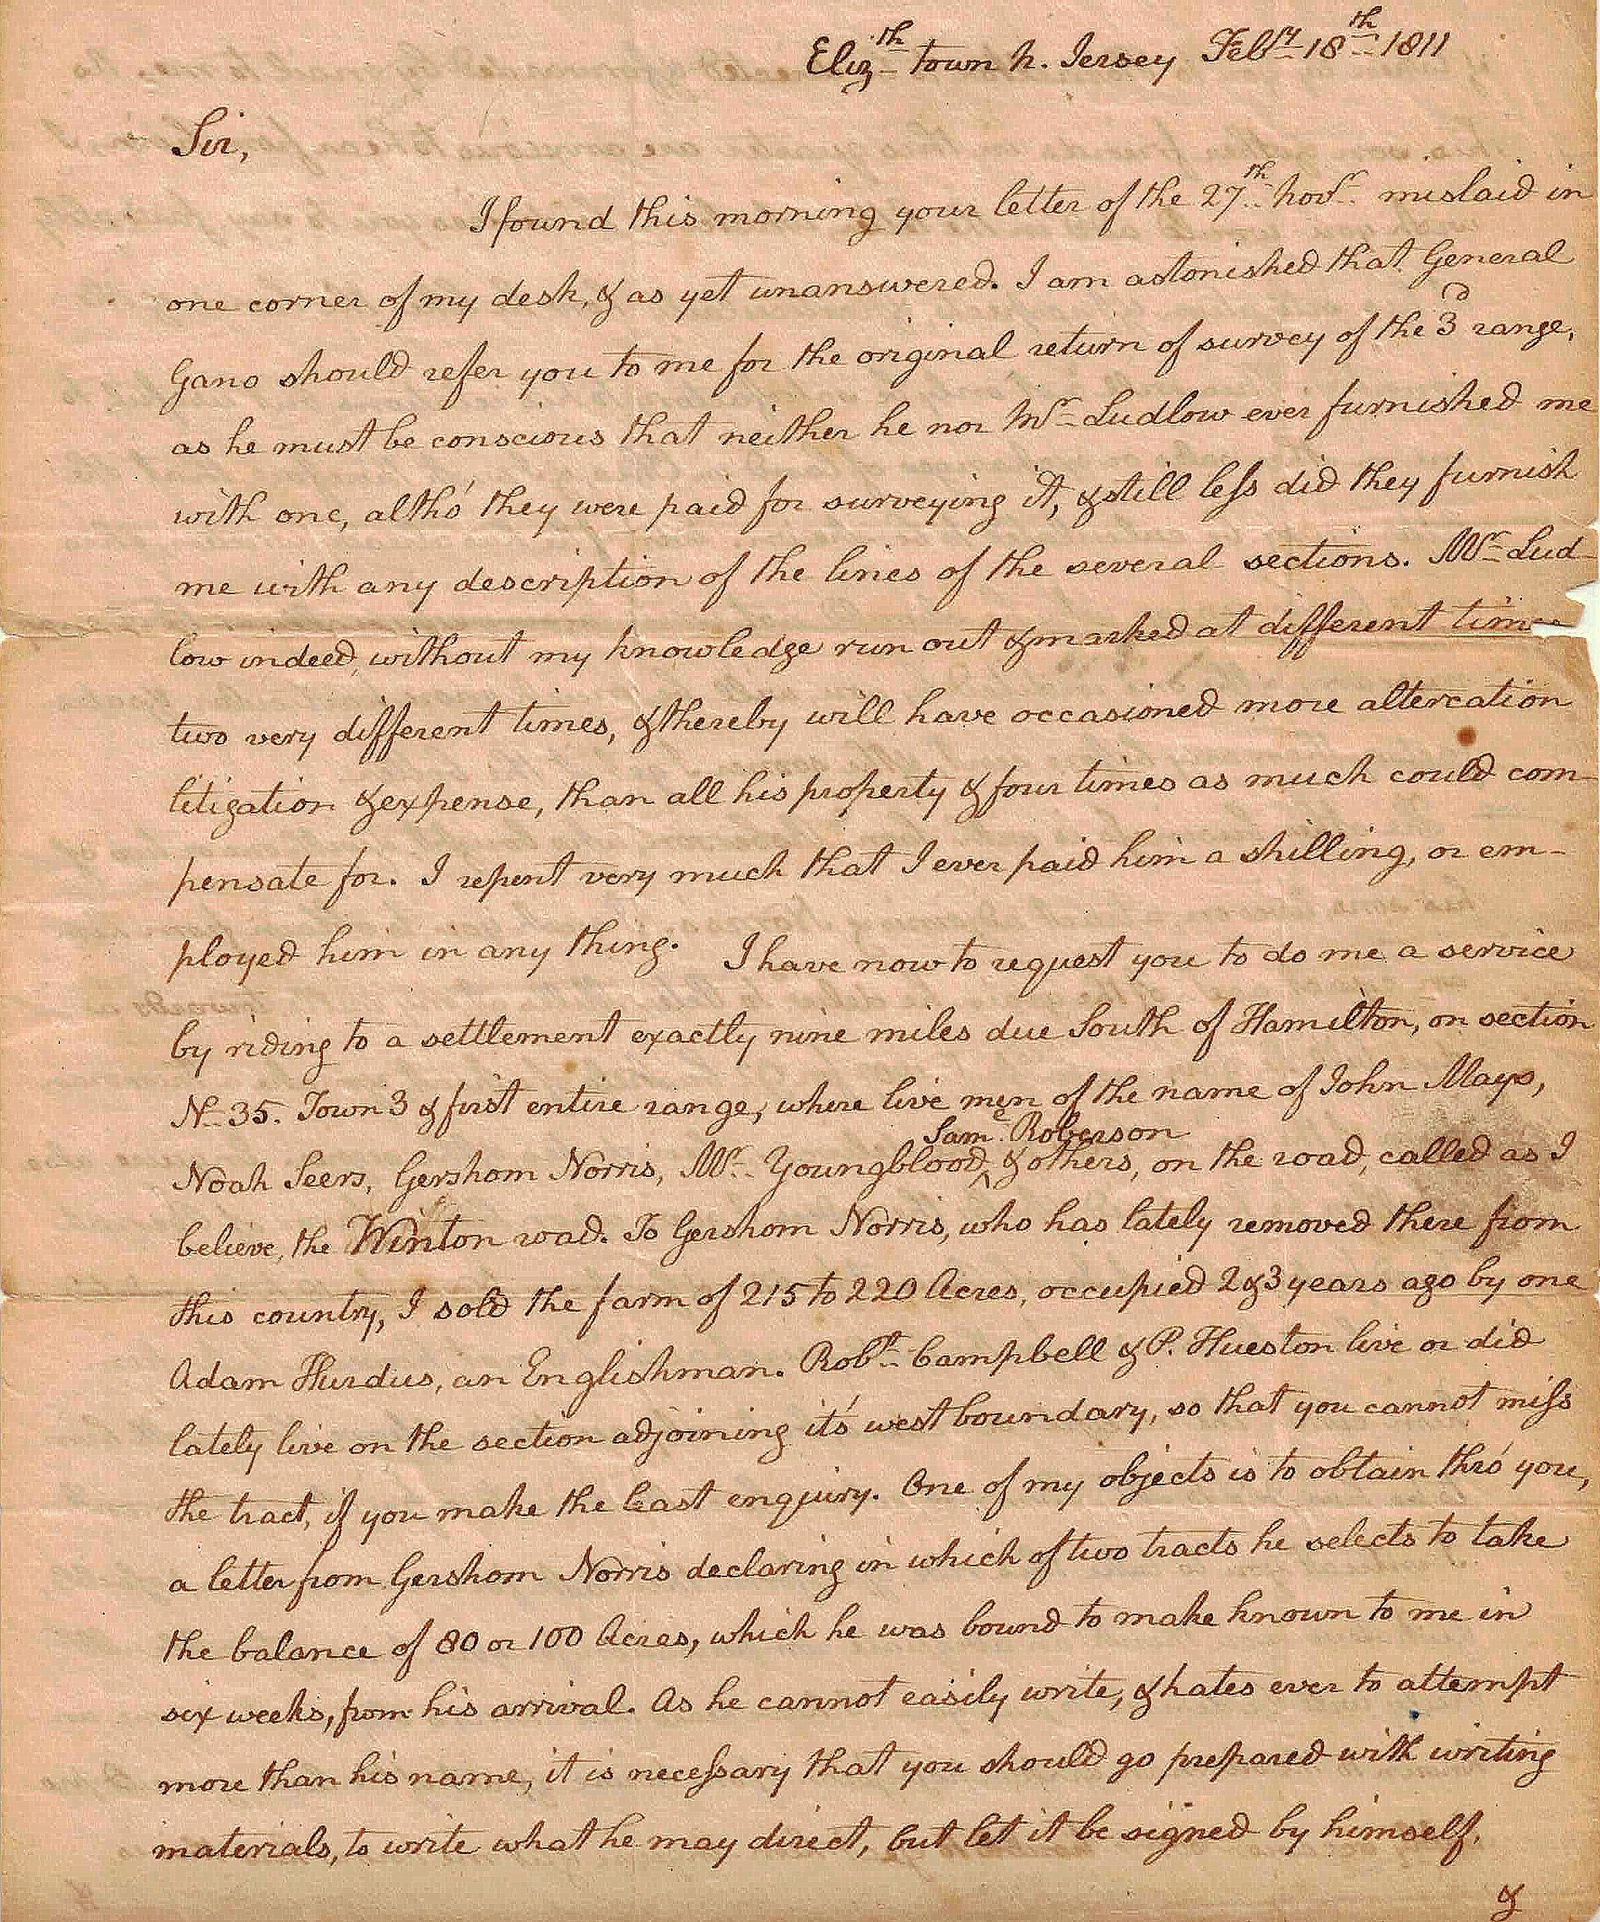 Eliz.th town N. Jersey Feb.ry 18.th 1811
Sir,
I found this morning your letter of the 27.th Nov.r mislaid in
one corner of my desk, & as yet unanswered. I am astonished that General
Gano should refer you to me for the original return of survey of the 3.d range,
as he must be conscious that neither he nor M.r Ludlow ever furnished me
with one, altho' they were paid for surveying it, & still less did they furnish
me with any description of the lines of the several sections. M.r Lud-
low indeed, without my knowledge run out & marked at different times
two very different times, & thereby will have occasioned more altercation
litigation & expense, than all his property & four times as much could com-
pensate for. I repent very much that I ever paid him a shilling, or em-
ployed him in any thing. I have now to request you to do me a service
by riding to a settlement exactly nine miles due South of Hamilton, on section
N.o 35. Town 3 & first entire range, where live men of the name of John Mayo,
Sam.e Roberson
Noah Seers, Gershom Norris, M.r Youngblood, ^ & others, on the road, called as I
believe, the Winton road. To Gershom Norris, who has lately removed there from
this country, I sold the farm of 215 to 220 Acres, occupied 2 & 3 years ago by one
Adam Hurdus, an Englishman. Rob.t Campbell & P. Hueston live or did
lately live on the section adjoining it's west boundary, so that you cannot miss
the tract, if you make the least enquiry. One of my objects is to obtain thro' you,
a letter from Gershom Norris declaring in which of two tracts he selects to take
the balance of 80 or 100 Acres, which he was bound to make known to me in
six weeks, from his arrival. As he cannot easily write, & hates ever to attempt
more than his name, it is necessary that you should go prepared with writing
materials, to write what he may direct, but let it be signed by himself.
&